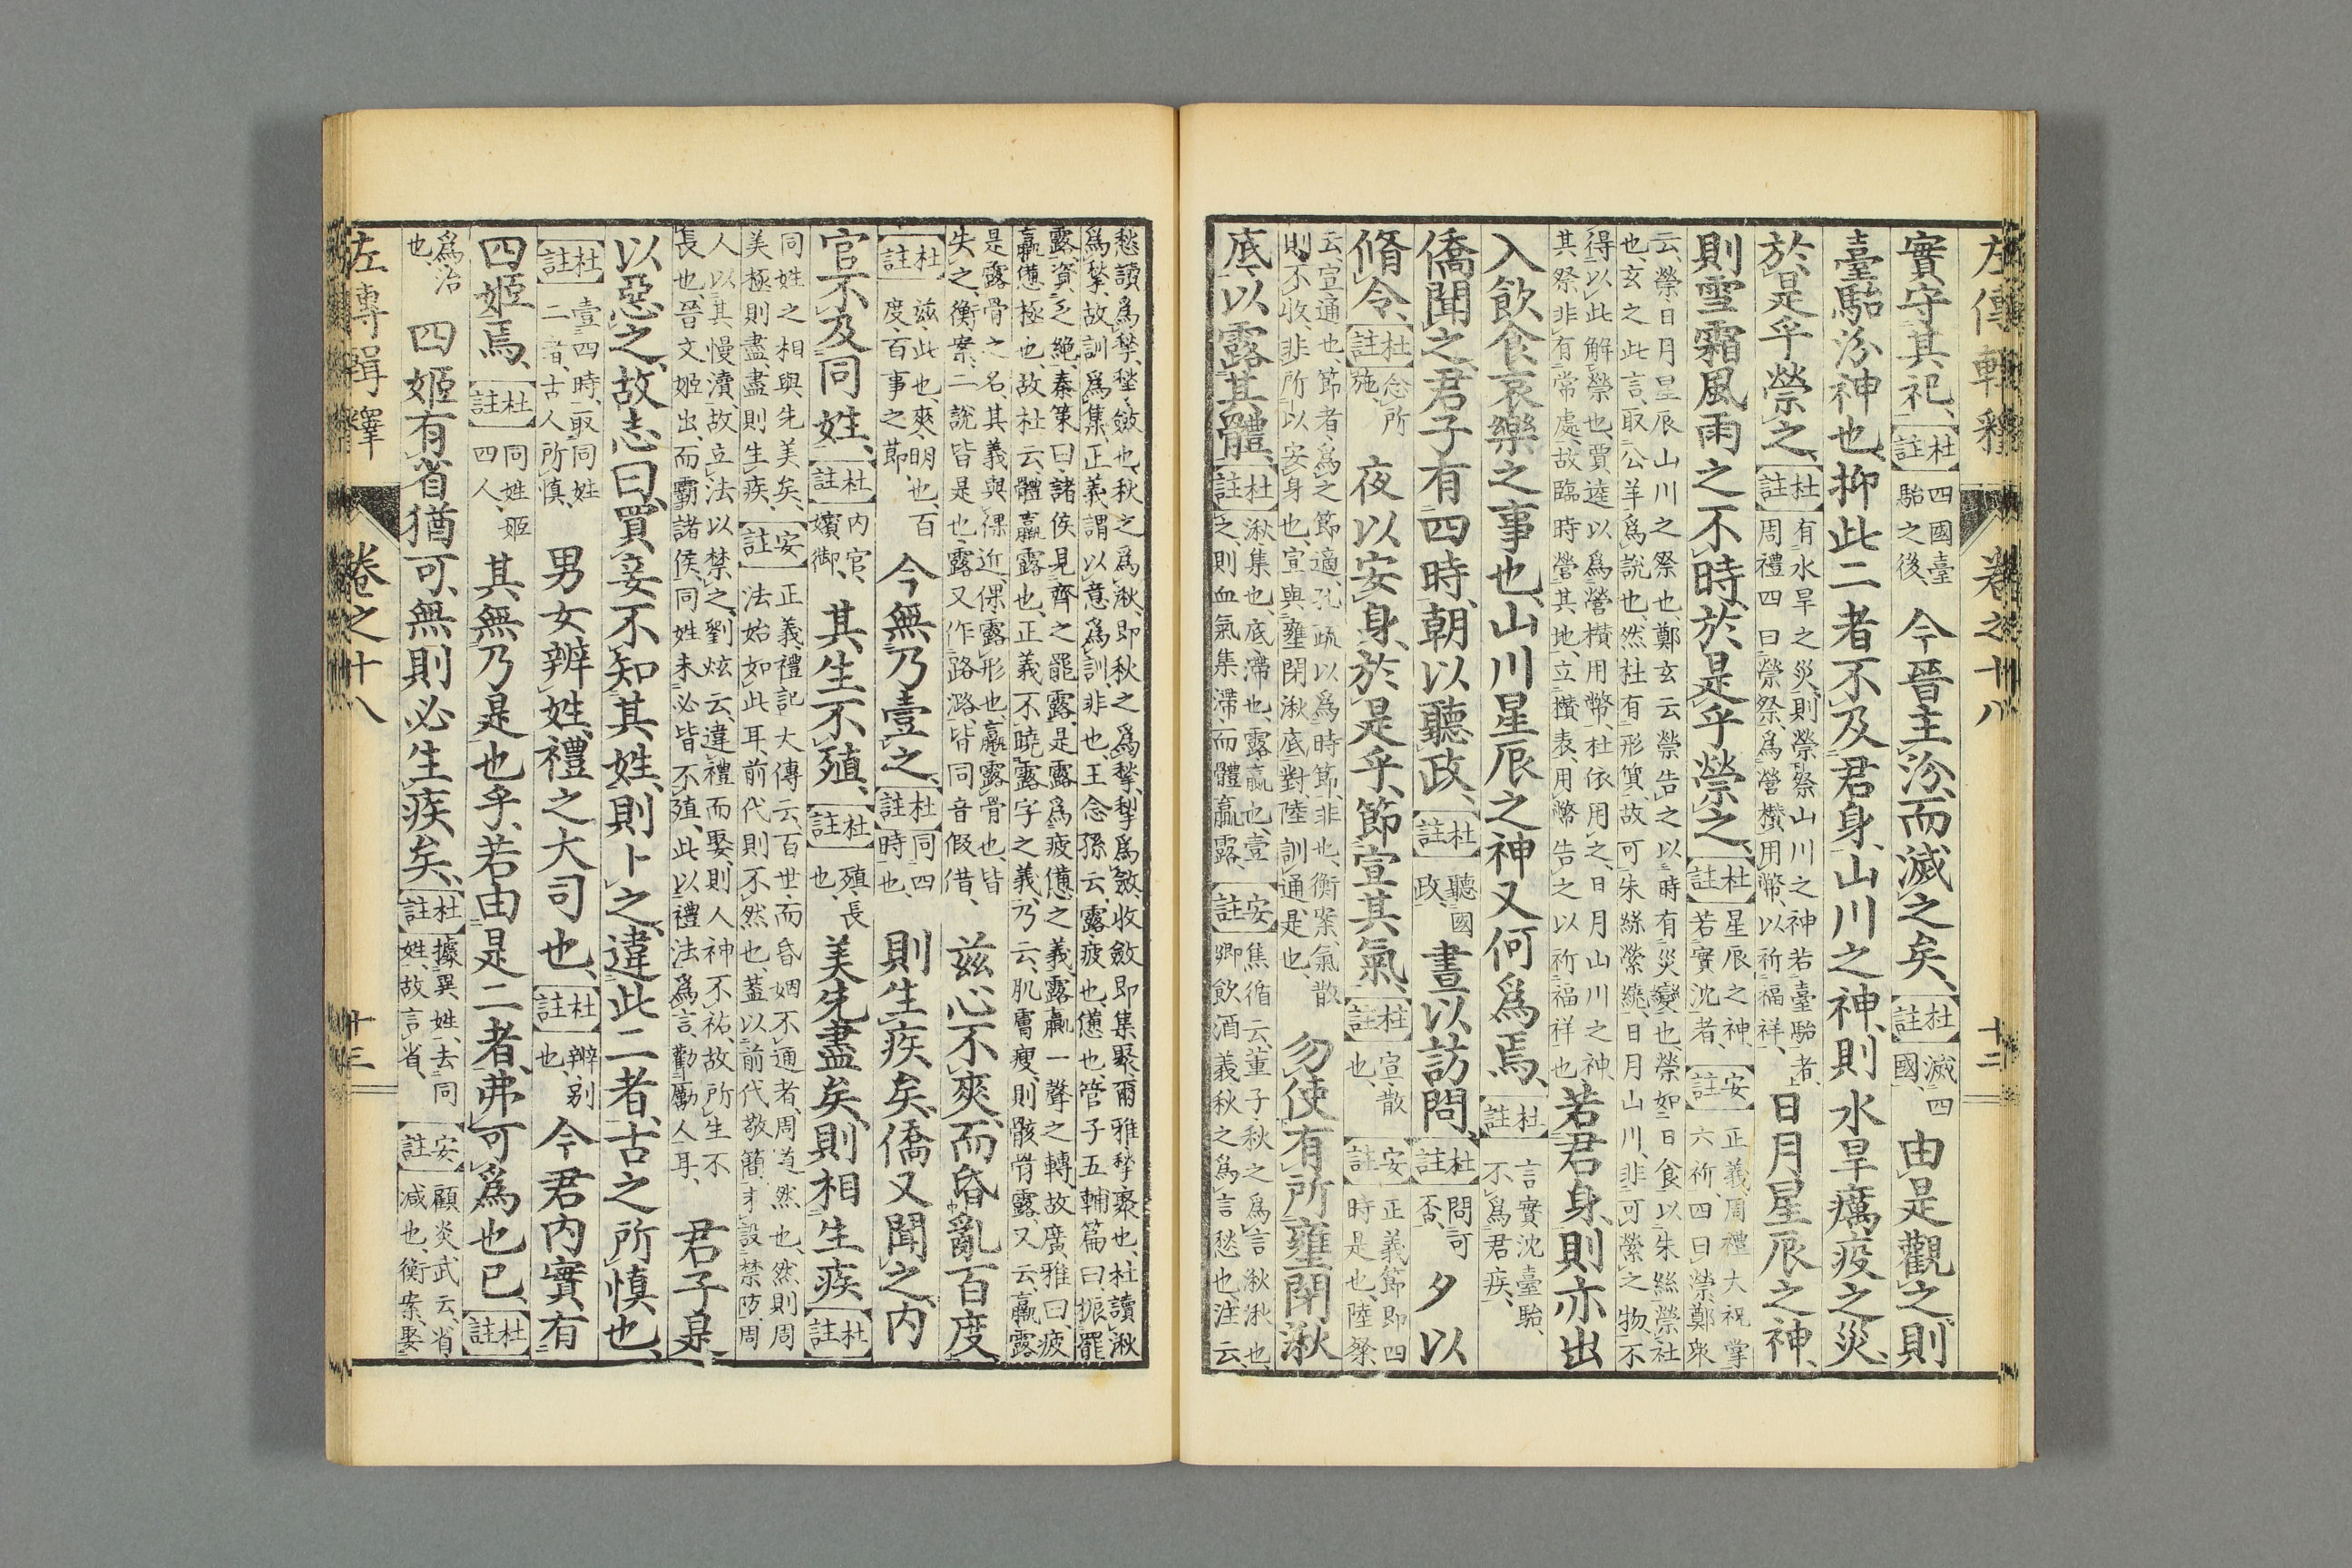 左傳輯釋 卷之十八 十二
實守其祀、杜註四國臺駘之後、今晉主汾而滅之矣、杜註滅四國由是觀之則
臺駘汾神也、抑此二者不及君身、山川之神、則水旱癘疫之災、
於是乎禜之、杜註有水旱之災、則禜祭山川之神若臺駘者、周禮四曰禜祭、爲營欑用幣、以祈福祥、日月星辰之神、
則雪霜風雨之不時、於是乎禜之、杜註星辰之神、若實沈者、安註正義、周禮大祝掌六祈四曰禜、鄭衆
云、禜日月星辰山川之祭也、鄭玄云禜告之以時有災變也禜如日食以朱絲禜社
也、玄之此言、取公羊爲說也、然杜有形質、故可朱絲縈繞、日月山川、非可縈之物、不
得以此解禜也、賈逵以爲營欑用幣、杜依用之、日月山川之神、
其祭非有常處、故臨時營其地、立欑表、用幣告之以祈福祥也若君身、則亦出
入飲食哀樂之事也、山川星辰之神又何爲焉、杜註言實沈臺駘、不爲君疾、
僑聞之、君子有四時、朝以聽政、杜註聽國政、晝以訪問、杜註問可否、夕以
脩令、杜註念所施、夜以安身、於是乎節宣其氣、杜註宣散也、安註正義節即四時是也、陸粲
云、宣通也、節者、爲之節適、孔疏以爲時節、非也、衡案、氣散
則不收、非所以安身也、宣與壅閉湫底對、陸訓通是也、勿使有所壅閉湫
底、以露其體、杜註湫集也、底滯也、露羸也、壹之、則血氣集滯、而體羸露、安註焦循云、董子秋之爲言湫湫也、卿飲酒義秋之爲言愁也、注云、
愁讀爲揫、揫、斂也、秋之爲湫、即秋之爲揫、揫爲斂、收斂即集聚、爾雅揫聚也、杜讀湫
爲揫、故訓爲集、正義謂以意爲訓、非也、王念孫云、露疲也、憊也、管子五輔篇曰、振罷
露、資乏絶、秦策曰、諸侯見齊之罷露、是露爲疲憊之義、露羸一聲之轉故廣雅曰、疲
羸憊極也、故杜云體羸露也、正義不曉露字之義、乃云、肌膚瘦、則骸骨露、又云、羸露
是露骨之名、其義與倮近、倮露形也、羸露骨也、皆
失之、衡案、二說皆是也、露又作路潞、皆同音假借、茲心不爽、而昏亂百度、
杜註茲、此也、爽、明也、百度百事之節、今無乃壹之、杜註同四時也、則生疾矣、僑又聞之、内
官不及同姓、杜註内官、嬪御、其生不殖、杜註殖、長也、美先盡矣、則相生疾杜註
同姓之相與先美矣、美極則盡、盡則生疾、安註正義、禮記大傳云、百世而昏姻不通者、周道然也、然則周法始如此耳、前代則不然也、蓋以前代敬簡、未設禁防、周
人以其慢瀆、故立法以禁之、劉炫云、違禮而娶、則人神不祐、故所生不
長也、晉文姬出、而霸諸侯、同姓未必皆不殖、此以禮法爲言、勸勵人耳、君子是
以惡之、故志曰、買妾不知其姓、則卜之、違此二者、古之所慎也、
杜註壹四時、取同姓二者、古人所慎、男女辨姓、禮之大司也、杜註辨別也、今君内實有
四姬焉、杜註同姓、姬四人、其無乃是也乎、若由是二者、弗可爲也已、杜註
爲治也、四姬有省猶可、無則必生疾矣、杜註據異姓、去同姓、故言省、安註顧炎武云、省、減也、衡案、娶
左傳輯釋 卷之十八 十三